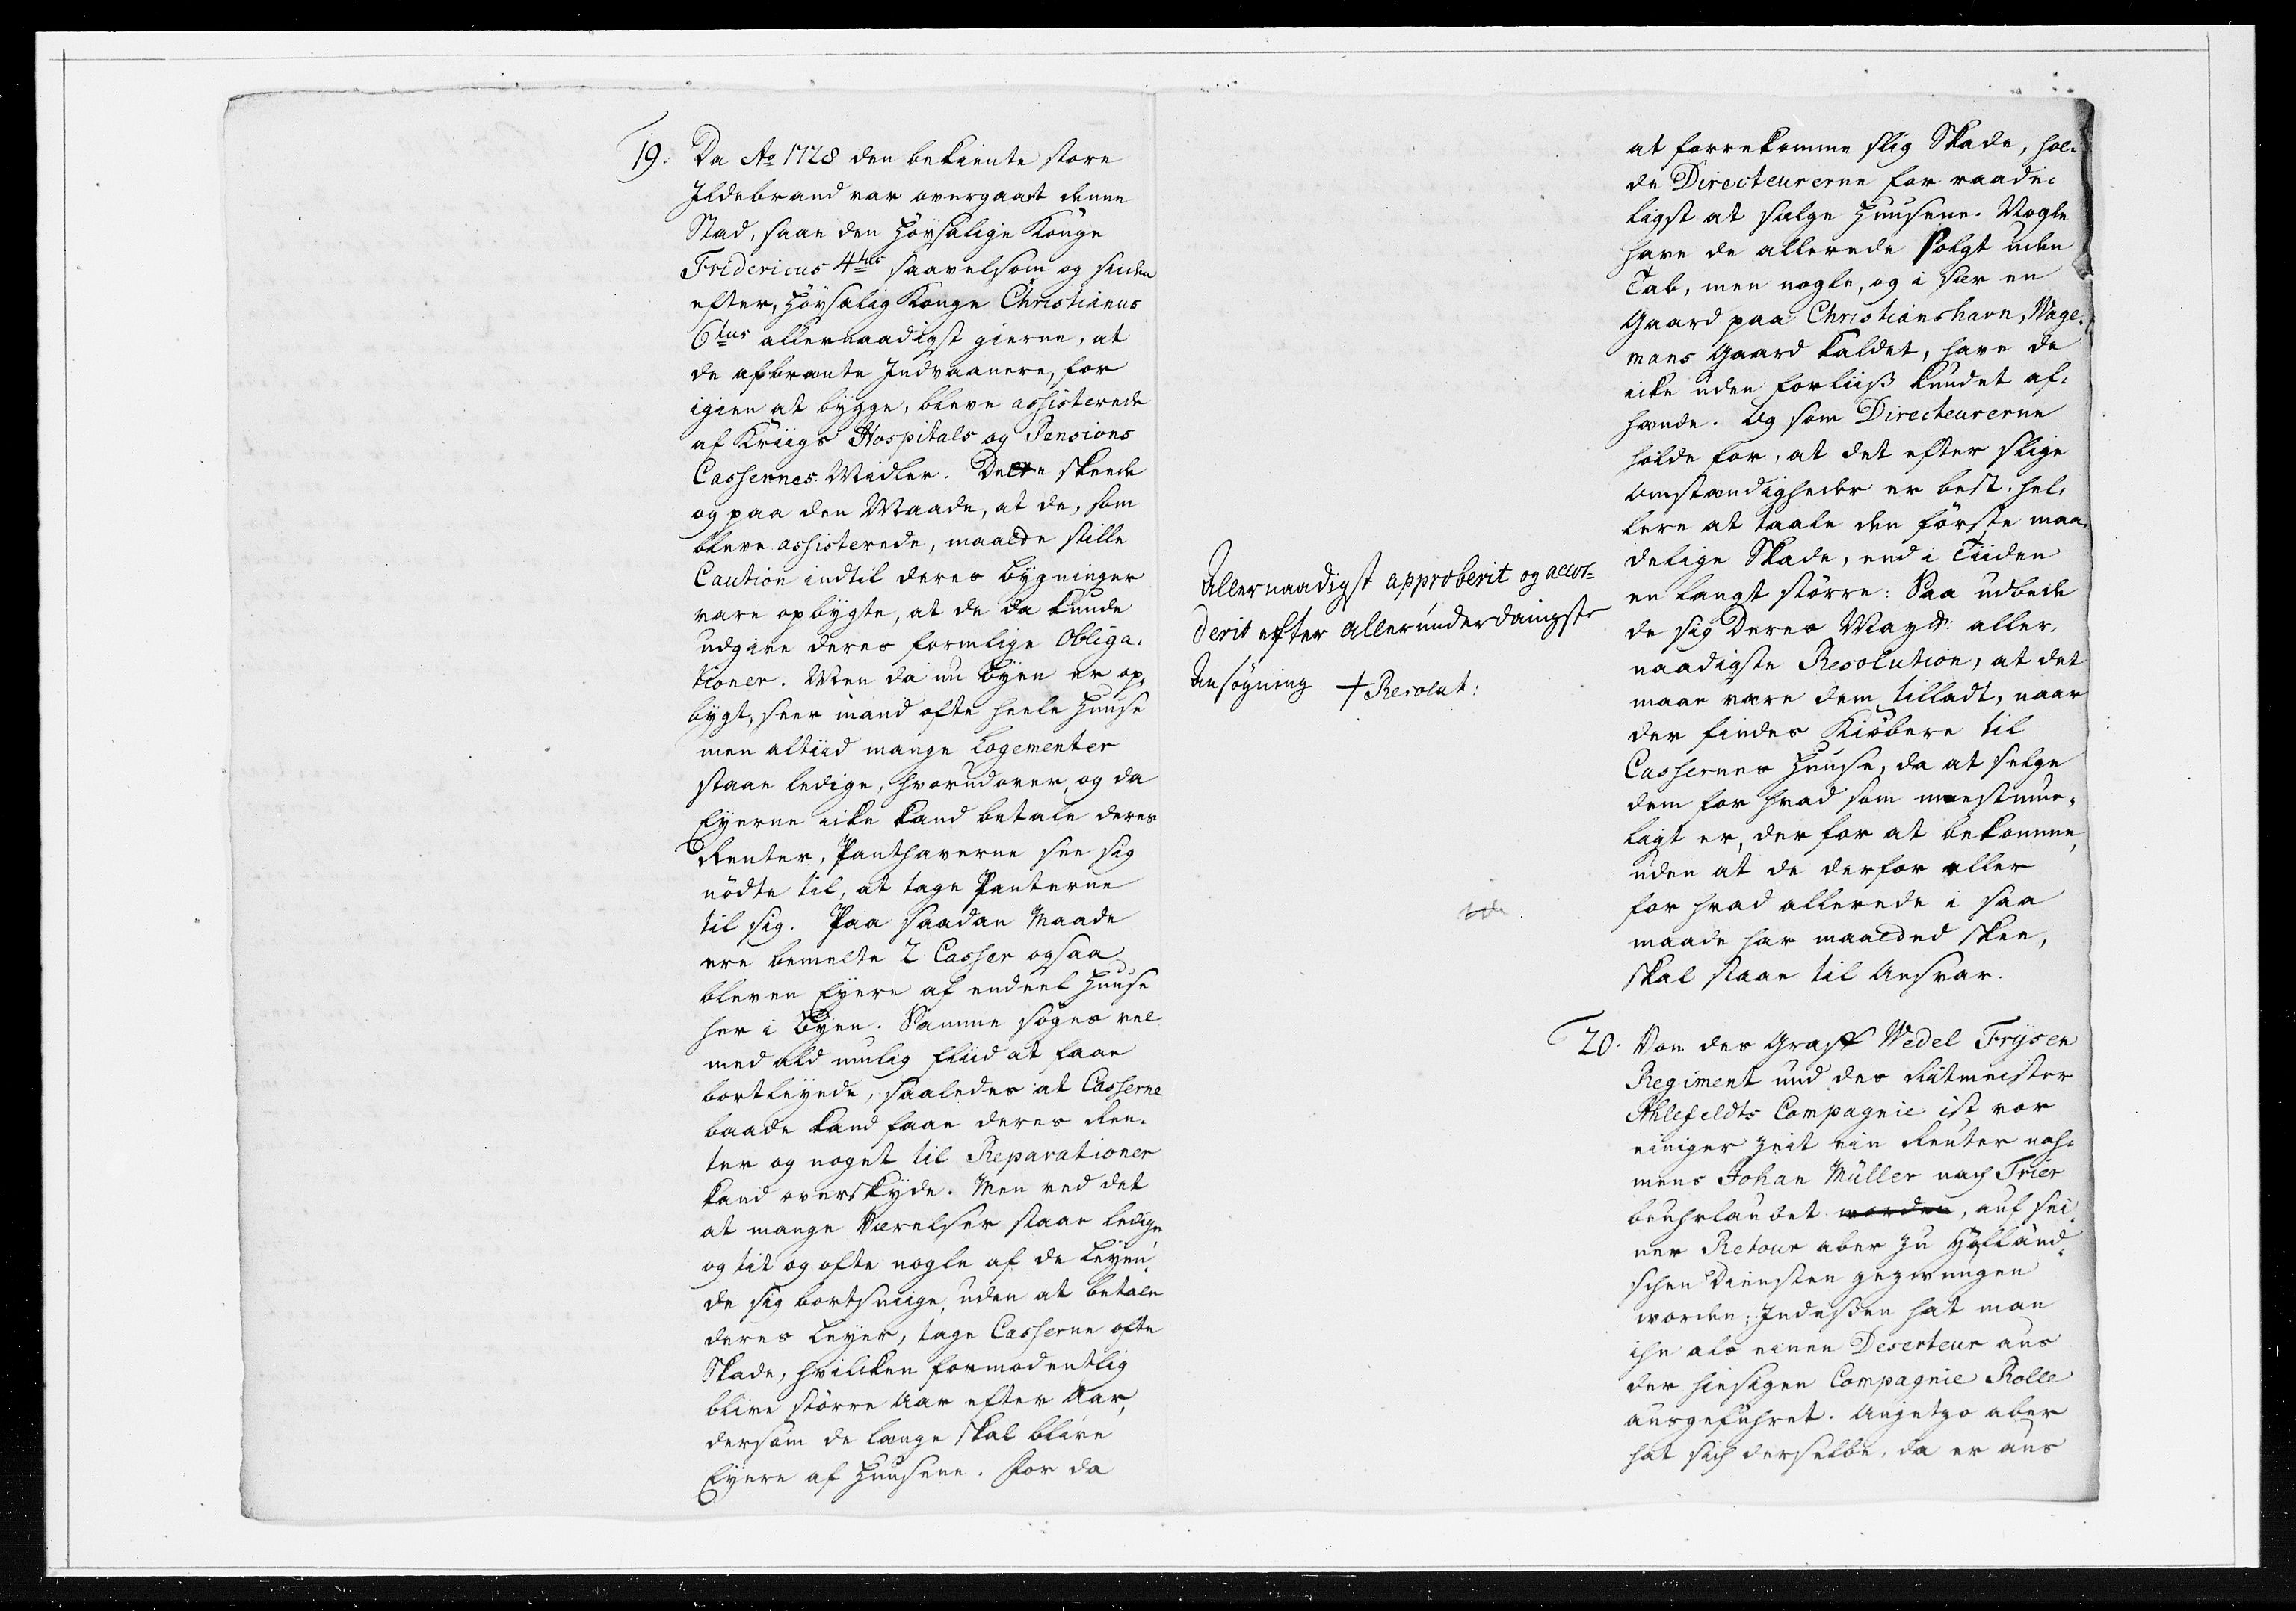 19. Da Ao 1728 den bekiente store
Ildebrand var overgaaet denne
Stad, saae den Høysalige Konge
Fridericus 4tus saavelsom og siden
efter, Høysalig Konge Christianus
6tus allernaadigst gierne, at
de afbrænte Indvaanere, for
igien at bygge, bleve assisterede
af Kriigs Hospitals og Pensions
Cassernes Midler. Dette skeede
og paa den Maade, at de, som
bleve assisterede, maatte stille
Caution indtil deres Bygninger
vare opbygte, at de da kunde
udgive deres formlige Obliga-
tioner. Men da nu Byen er op-
bygt, seer mand ofte heele Huuse
men altiid mange Logementer
staae ledige, hvorudover, og da
Eyerne icke kand betale deres
Renter, Panthaverne see sig
nödte til, at tage Panterne
til sig. Paa saadan Maade
ere bemelte 2 Casser ogsaa
bleven Eyere af endeel Huuse
her i Byen. Samme søges vel
med ald mulig Fliid at faae
bortleyede, saaledes at Casserne
baade kand faae deres Ren-
ter og noget til Reparationer
kand overskyde. Men ved det
at mange Værelser staae ledige,
og tit og ofte nogle af de Leyen-
de sig bortsniige, uden at betale
deres Leyer, tage Casserne ofte
Skade, hvilcken formodentlig
blive större Aar efter Aar,
dersom de længe skal blive
Eyere af Huusene. For da
Allernaadigst approberit og accor-
derit efter allerunderdanigste
Ansøgning + Resolut:
at forrekomme slig Skade, hol-
de Directeurerne for raade-
ligst at sælge Huusene. Nogle
have de allerede solgt uden
Tab, men nogle, og i sær en
Gaard paa Christianshavn, Wage-
mans Gaard kaldet, have de
icke uden Forliiß kundet af-
hænde. Og som Directeurerne
holde for, at det efter slige
Omstændigheder er best, hel-
lere at taale den første maa-
delige Skade, end i Tiiden
en langt större: Saa udbede
de sig Deres Mayts: aller-
naadigste Resolution, at det
maae være dem tilladt, naar
der findes Kiöbere til
Cassernes Huuse, da at selge
dem for hvad som meest mue-
ligt er, derfor at bekomme,
uden at de derfor eller
for hvad allerede i saa
maade har maatted skee,
skal staae til Ansvar.
20. Von des Graff Wedel Frysen
Regiment und des Ritmeister
Ahlefeldts Compagnie ist vor
einiger Zeit ein Reuter nah-
mens Johan Müller nach Trier
beuhrlaubet worden, auf sei-
ner Retour aber zu Holländ-
schen Diensten gezwungen
worden; Indeßen hat man
ihn als einen Deserteur aus
der hiesigen Compagnie Rolle
ausgeführet. Anjetzo aber
hat sich derselbe, da er aus